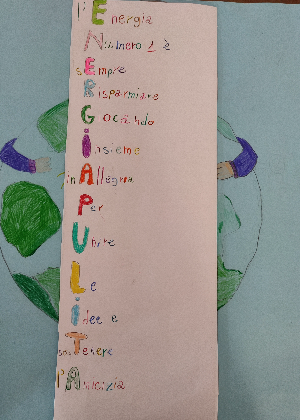 l'Energia
Numero 1 è
sEmpre
Risparmiare
Giocando
Insieme
in Allegria
Per
Unire
Le
Idee e
sosTenere
l'Amicizia